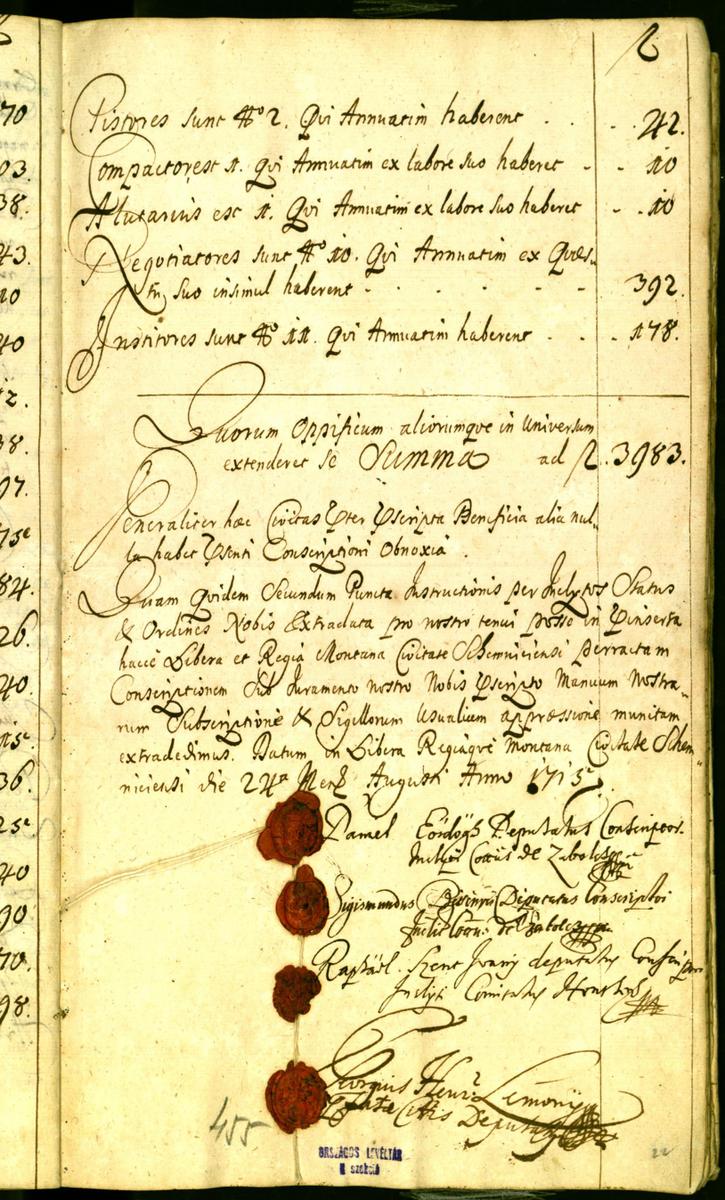 R
Pistores sunt No 2. Qvi Annuatim haberent . . . 42.
Compactor est 1. qvi Annuatim ex labore suo haberet - - 10
Alutarius est 1. Qvi Annuatim ex labore suo haberet - . 10
Negotiatores sunt No 10. Qvi Annuatim ex Quæs„
tu suo insimul haberent - - - - - - 392.
Institores sunt No 11. qvi Annuatim haberent . . . 178.
Quorum Oppificum aliorumqve in Universum
extenderet se Summa ad R. 3983.
Generaliter hæc Civitas præter præscripta Beneficia alia nul„
la habet præsenti Conscriptioni Obnoxia.
Quam Qvidem Secundum Puncta Instructionis per Inclytos Status
& Ordines Nobis Extradata pro nostro tenui posse in præinserta
hacce Libera et Regia Montana Civitate Schemniciensi perractam
Conscriptionem Sub Juramento nostro Nobis præscripto Manuum Nostra„
rum Subscriptione & Sigillorum Usualium appræssione munitam
extradedimus. Datum in Libera Regiaqve Montana Civitate Schem„
niciensi die 24a Mens Augusti Anno 1715
Daniel Eördögh Deputatus Conscriptor
Inclyti Cottus de Zabolch
Sigismundus Deputatus Conscriptor
Incliti Comi: de Szabolcz
Raphäel Szent Ivany deputatus Conscriptor
Inclyti Comitatus Honth
Georgius Henr Lemonÿ
Citis Deputatus
455
ORSZÁGOS LEVÉLTÁR
szekció
22
70
03.
38.
43.
10
40
12.
38.
97.
75
84.
26.
40.
15
36.
25
40
90
70.
98.